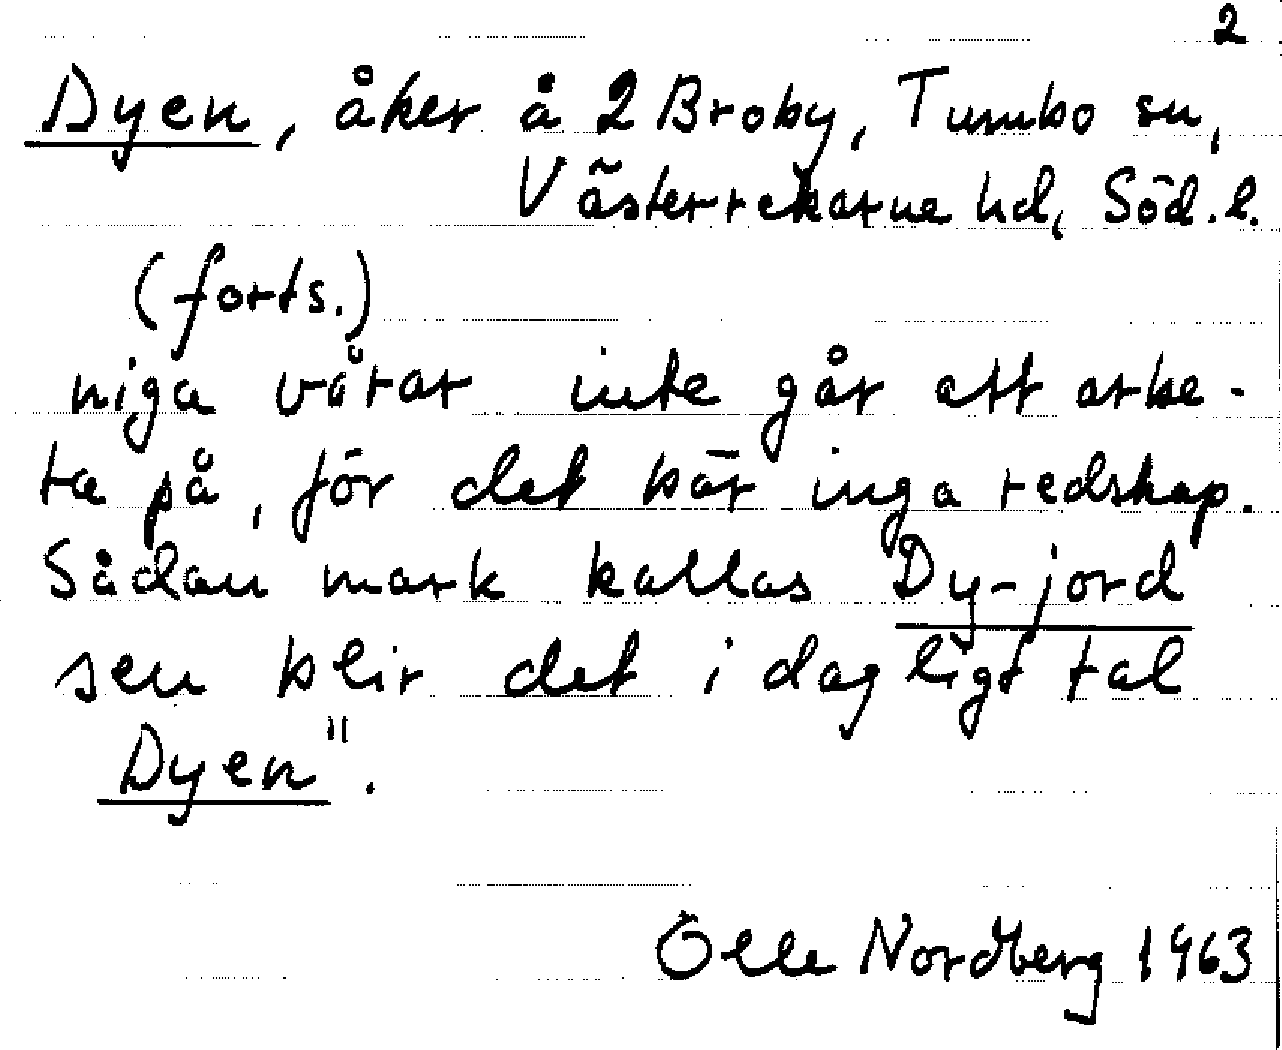 2
Dyen, åker å 2 Broby, Tumbo sn,
Västerrekarne hd, Söd. l.
(forts.)
niga vårar inte går att arbe-
ta på, för det bär inga redskap.
Sådan mark kallas Dy-jord
sen blir det i dagligt tal
Dyen".
Olle Nordberg 1963